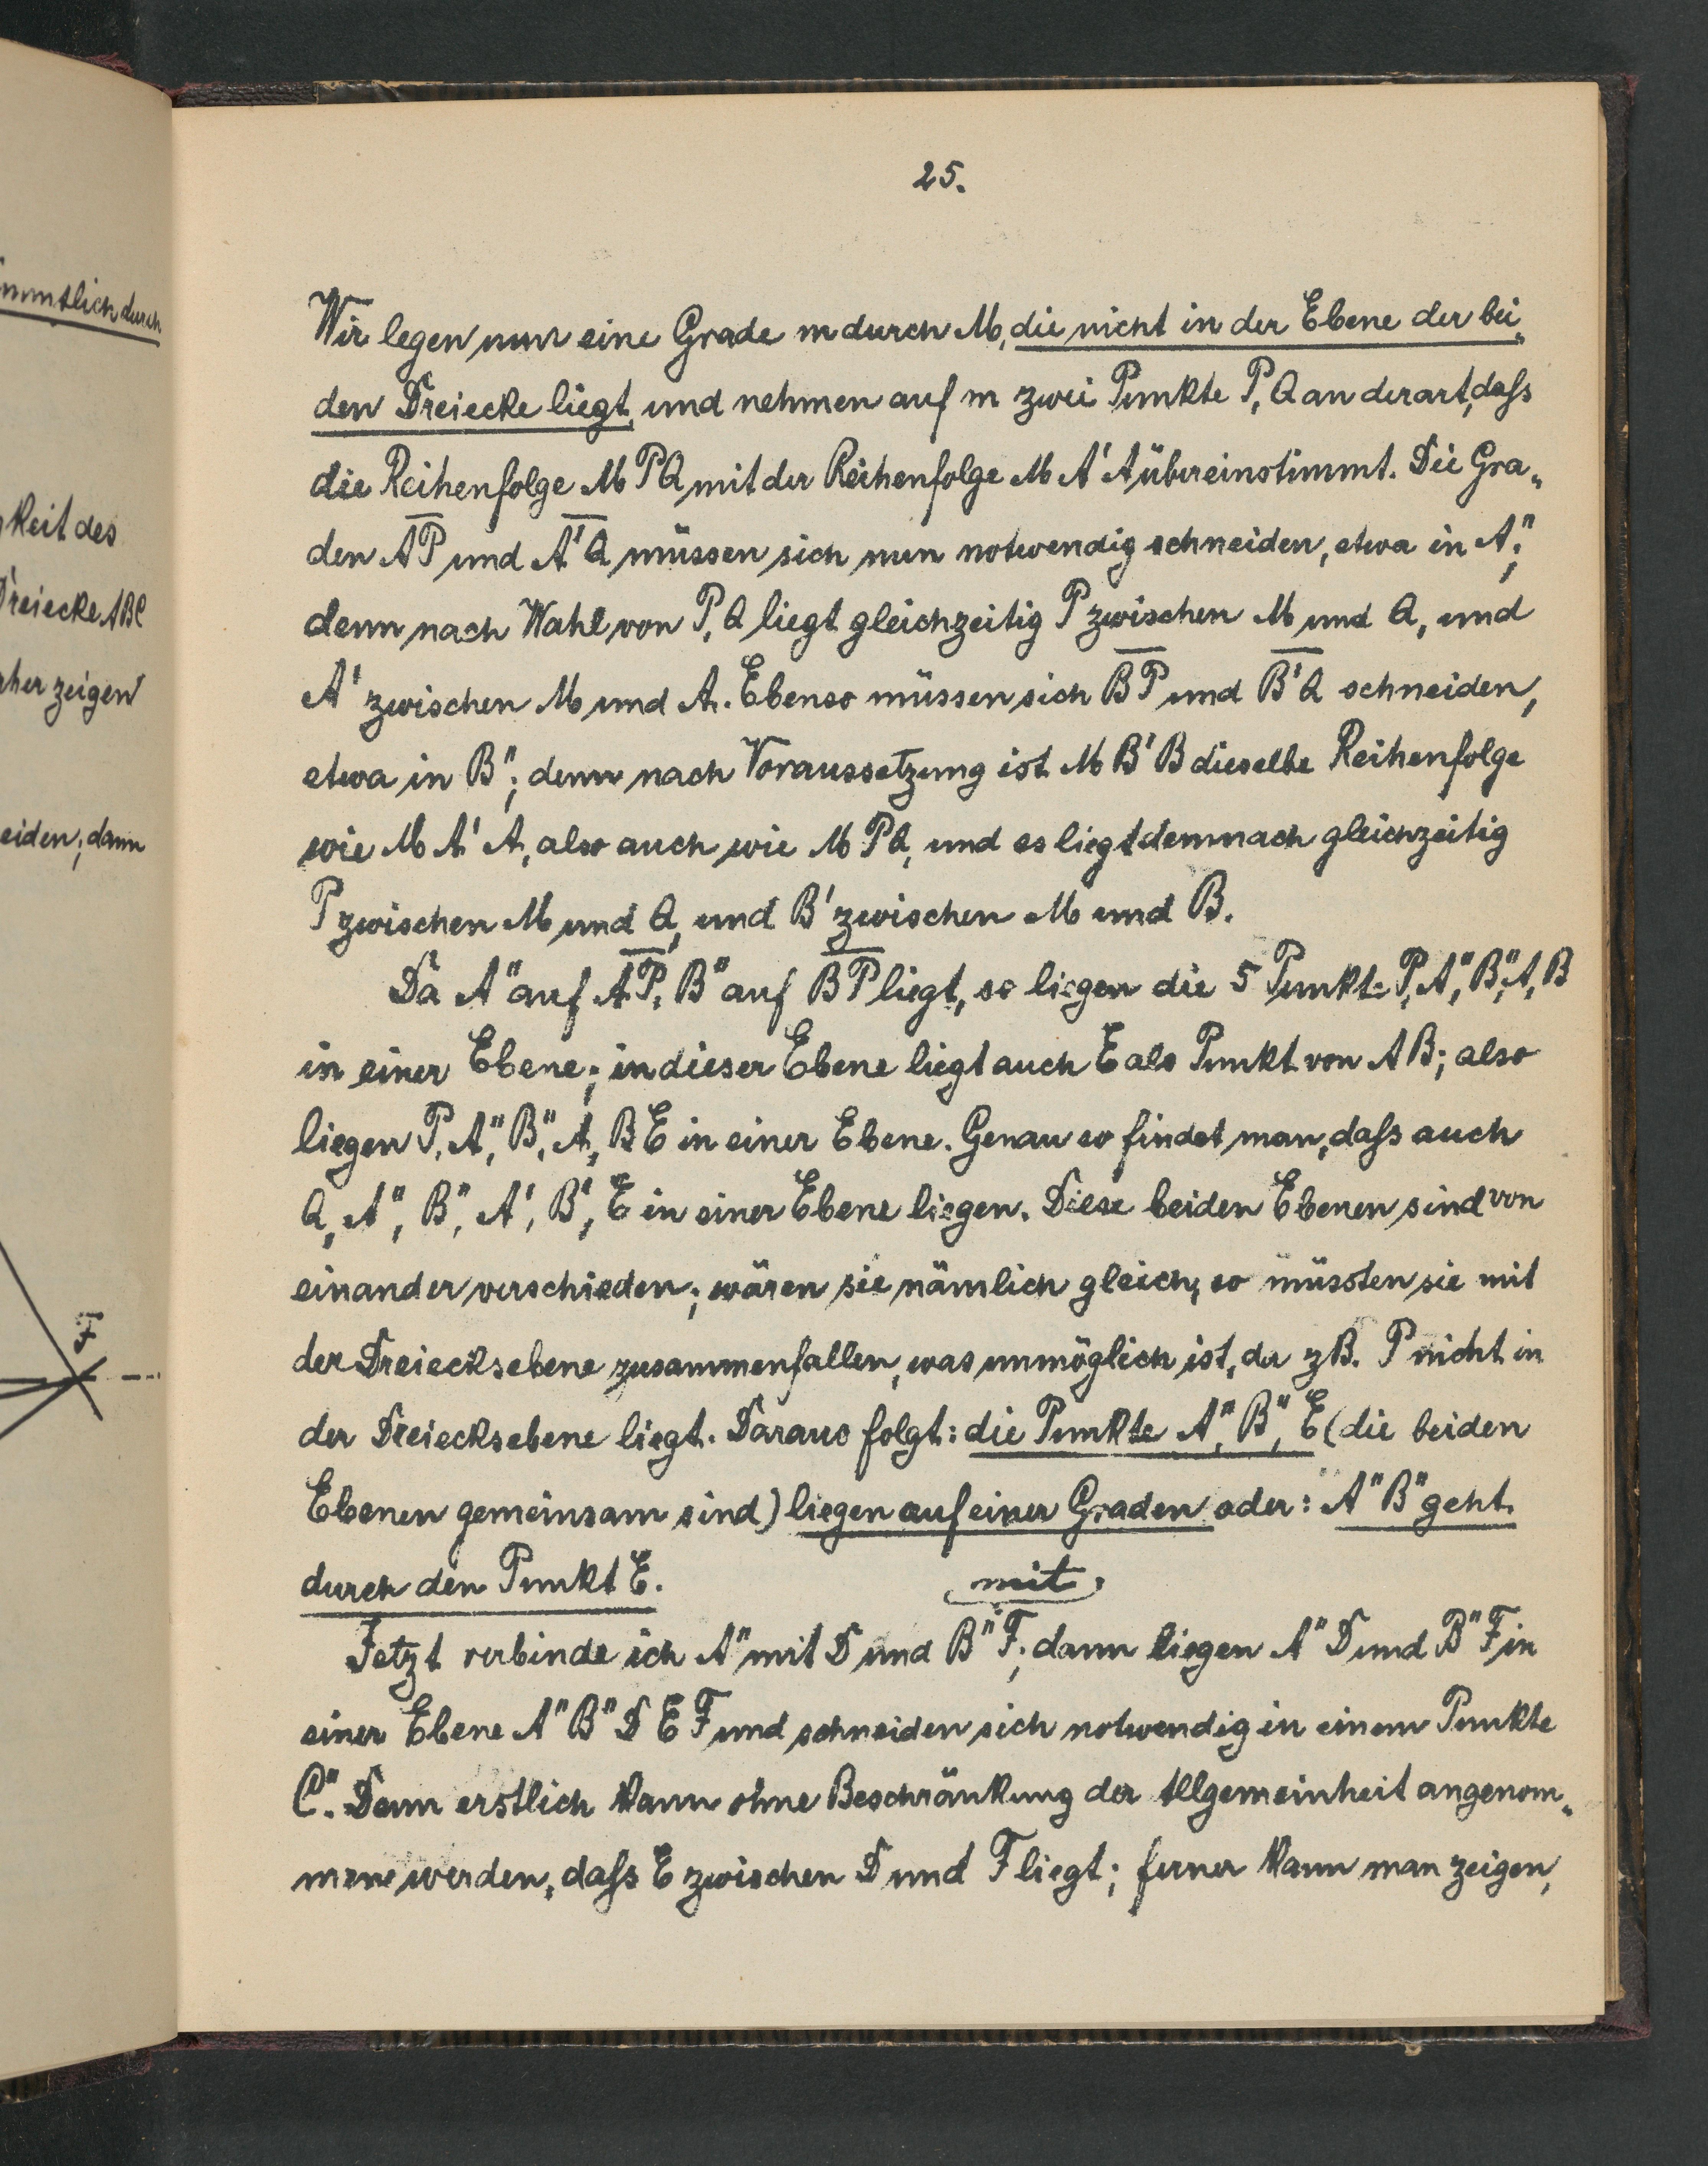 mmtlich durch
keit des
Dreiecke ABC
rher zeigen
eiden; dann
F
25.
Wir legen nun eine Grade m durch M, die nicht in der Ebene der bei„
den Dreiecke liegt, und nehmen auf m zwei Punkte P, Q an derart, daſs
die Reihenfolge M P Q mit der Reihenfolge M A' A übereinstimmt. Die Gra„
den A̅P̅ und A̅'̅Q̅ müssen sich nun notwendig schneiden, etwa in A";
denn nach Wahl von P, Q liegt gleichzeitig P zwischen M und Q, und
A' zwischen M und A. Ebenso müssen sich B̅P̅ und B̅'̅Q̅ schneiden,
etwa in B"; denn nach Voraussetzung ist M B' B dieselbe Reihenfolge
wie M A' A, also auch wie M P Q, und es liegt demnach gleichzeitig
P zwischen M und Q, und B' zwischen M und B.
Da A" auf A̅P̅, B" auf B̅P̅ liegt, so liegen die 5 Punkte P, A", B", A, B
in einer Ebene; in dieser Ebene liegt auch E als Punkt von AB; also
liegen P, A", B", A, B E in einer Ebene. Genau so findet man, daſs auch
Q, A", B", A', B', E in einer Ebene liegen. Diese beiden Ebenen sind von
einander verschieden; wären sie nämlich gleich, so müssten sie mit
der Dreiecksebene zusammenfallen, was unmöglich ist, da zB. P nicht in
der Dreiecksebene liegt. Daraus folgt: die Punkte A", B", E (die beiden
Ebenen gemeinsam sind) liegen auf einer Graden oder: A" B" geht
durch den Punkt E.
mit
Jetzt verbinde ich A" mit D und B" F; dann liegen A" D und B" F in
einer Ebene A" B" D E F und schneiden sich notwendig in einem Punkte
C". Denn erstlich kann ohne Beschränkung der Allgemeinheit angenom„
mene werden, daſs E zwischen D und F liegt; ferner kann man zeigen,